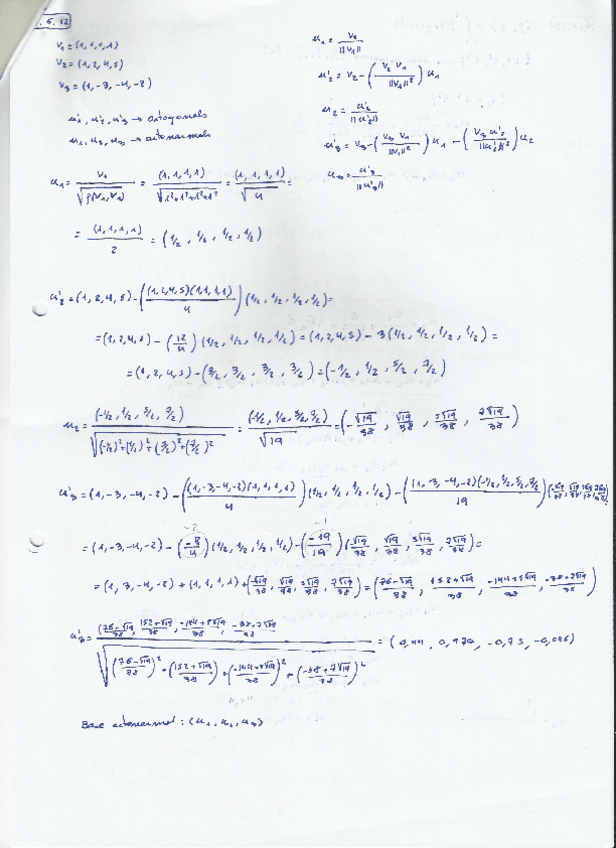 .5.12
V₁ = (1,1,1,1)
V₂ = (1,2,4,5)
V₃ = (1,-3,-4,-2)
u'₁, u'₂, u'₃ → ortogonals
u₁, u₂, u₃ → ortonormals
u₁ = V₁/||V₁||
u'₂ = V₂ - (V₂ V₁/||V₁||²) u₁
u₂ = u'₂/||u'₂||
u'₃ = V₃ - (V₃ V₁/||V₁||²) u₁ - (V₃ u'₂/||u'₂||²) u₂
u₃ = u'₃/||u'₃||
u₁ = V₁/√f(V₁,V₁) = (1,1,1,1)/√1²+1²+1²+1² = (1,1,1,1)/√4 =
= (1,1,1,1)/2 = (1/2, 1/2, 1/2, 1/2)
u'₂ = (1,2,4,5) - ((1,2,4,5)(1,1,1,1)/4) (1/2, 1/2, 1/2, 1/2) =
= (1,2,4,5) - (12/4) (1/2, 1/2, 1/2, 1/2) = (1,2,4,5) - 3(1/2, 1/2, 1/2, 1/2) =
= (1,2,4,5) - (3/2, 3/2, 3/2, 3/2) = (-1/2, 1/2, 5/2, 7/2)
u₂ = (-1/2, 1/2, 5/2, 7/2)/√(-1/2)²+(1/2)²+(5/2)²+(7/2)² = (-1/2, 1/2, 5/2, 7/2)/√19 = (-√19/38, √19/38, 5√19/38, 7√19/38)
u'₃ = (1,-3,-4,-2) - ((1,-3,-4,-2)(1,1,1,1)/4) (1/2, 1/2, 1/2, 1/2) - ((1,-3,-4,-2)(-1/2, 1/2, 5/2, 7/2)/19) (-√19/38, √19/38, 5√19/38, 7√19/38)
-2 -1
= (1,-3,-4,-2) - (-8/4) (1/2, 1/2, 1/2, 1/2) - (-19/19) (-√19/38, √19/38, 5√19/38, 7√19/38) =
= (1,3,-4,-2) + (1,1,1,1) + (-√19/38, √19/38, 5√19/38, 7√19/38) = (76-√19/38, 152+√19/38, -144+5√19/38, -38+7√19/38)
u'₃ = (76-√19/38, 152+√19/38, -144+5√19/38, -38+7√19/38)/√(76-√19/38)²+(152+√19/38)+(-144+5√19/38)²+(-38+7√19/38)² = (0,44, 0,970, -0,75, -0,046)
Base ortonormal: (u₁, u₂, u₃)